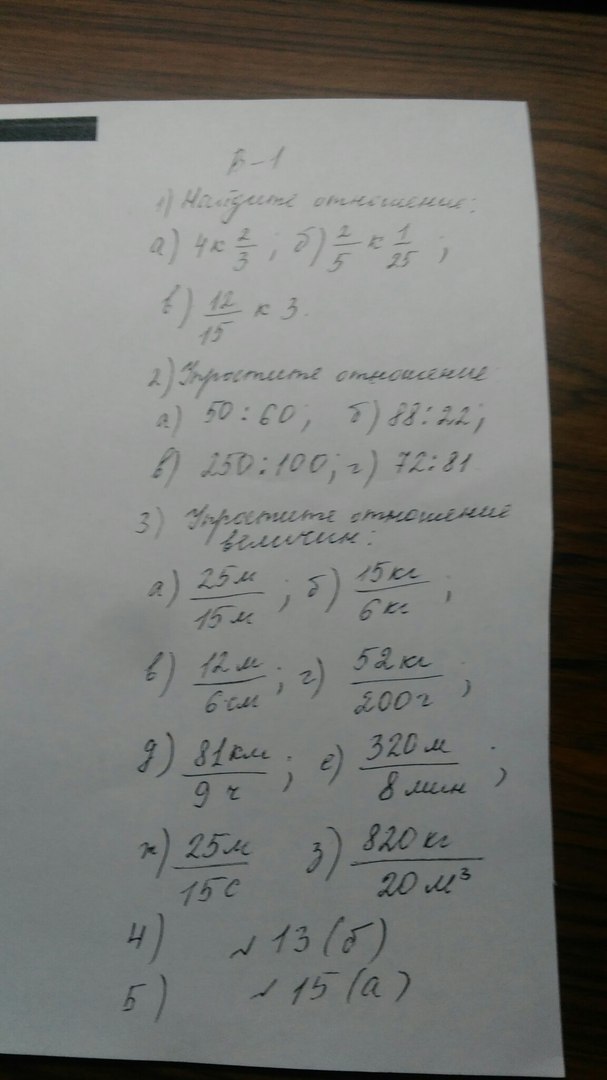 В-1
1) Найдите отношение:
а) 4 к 2/3 ; б) 2/5 к 1/25 ;
в) 12/15 к 3.
2) Упростите отношение
а) 50 : 60 ; б) 88 : 22 ;
в) 250 : 100 ; г) 72 : 81
3) Упростите отношение
величин:
а) 25м/15м ; б) 15кг/6кг ;
в) 12м/6см ; г) 52кг/200г ;
д) 81км/9ч ; е) 320м/8мин ;
ж) 25м/15с з) 820кг/20м³
4) № 13 (б)
5) № 15 (а)